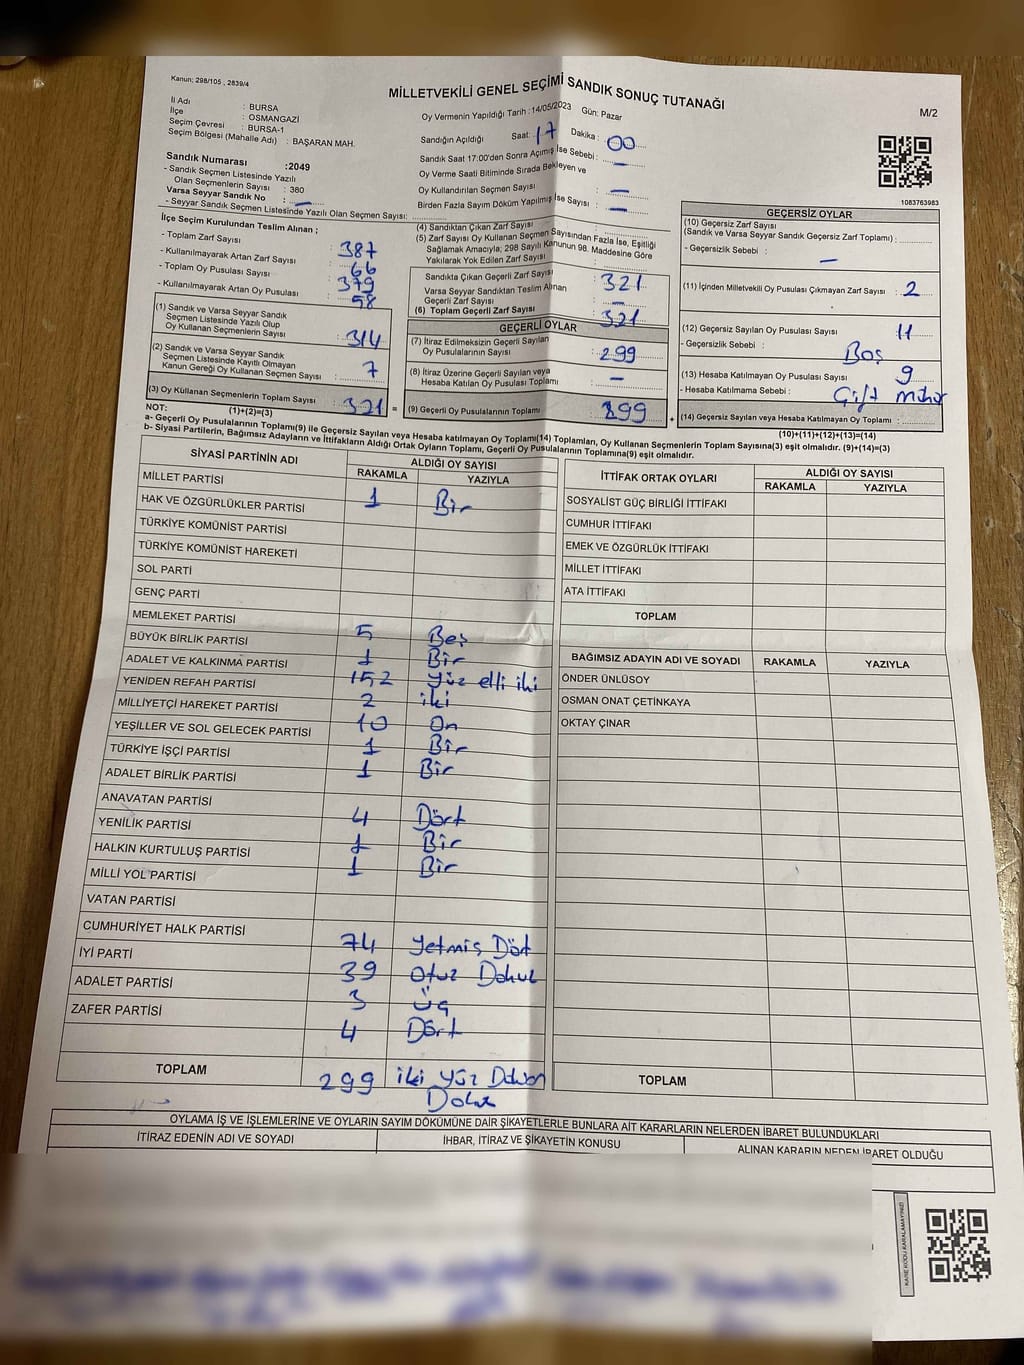 Kanun; 298/105 , 2839/4
MİLLETVEKİLİ GENEL SEÇİMİ SANDIK SONUÇ TUTANAĞI
M/2
İl Adı : BURSA
İlçe : OSMANGAZİ
Seçim Çevresi : BURSA-1
Seçim Bölgesi (Mahalle Adı) : BAŞARAN MAH.
Sandık Numarası :2049
- Sandık Seçmen Listesinde Yazılı
Olan Seçmenlerin Sayısı : 380
Varsa Seyyar Sandık No : —
- Seyyar Sandık Seçmen Listesinde Yazılı Olan Seçmen Sayısı:
Oy Vermenin Yapıldığı Tarih :14/05/2023 Gün: Pazar
Sandığın Açıldığı Saat: 17 Dakika : 00
Sandık Saat 17:00'den Sonra Açımış İse Sebebi : —
Oy Verme Saati Bitiminde Sırada Bekleyen ve
Oy Kullandırılan Seçmen Sayısı : —
Birden Fazla Sayım Döküm Yapılmış İse Sayısı : —
1083763983
İlçe Seçim Kurulundan Teslim Alınan ;
- Toplam Zarf Sayısı : 387
- Kullanılmayarak Artan Zarf Sayısı : 66
- Toplam Oy Pusulası Sayısı : 379
- Kullanılmayarak Artan Oy Pusulası : 58
(1) Sandık ve Varsa Seyyar Sandık
Seçmen Listesinde Yazılı Olup
Oy Kullanan Seçmenlerin Sayısı : 314
(2) Sandık ve Varsa Seyyar Sandık
Seçmen Listesinde Kayıtlı Olmayan
Kanun Gereği Oy Kullanan Seçmen Sayısı : 7
(3) Oy Kullanan Seçmenlerin Toplam Sayısı : 321 =
(4) Sandıktan Çıkan Zarf Sayısı
(5) Zarf Sayısı Oy Kullanan Seçmen Sayısından Fazla İse, Eşitliği
Sağlamak Amacıyla; 298 Sayılı Kanunun 98. Maddesine Göre
Yakılarak Yok Edilen Zarf Sayısı
Sandıkta Çıkan Geçerli Zarf Sayısı : 321
Varsa Seyyar Sandıktan Teslim Alınan
Geçerli Zarf Sayısı : —
(6) Toplam Geçerli Zarf Sayısı : 321
GEÇERLİ OYLAR
(7) İtiraz Edilmeksizin Geçerli Sayılan
Oy Pusulalarının Sayısı : 299
(8) İtiraz Üzerine Geçerli Sayılan veya
Hesaba Katılan Oy Pusulası Toplamı : —
(9) Geçerli Oy Pusulalarının Toplamı : 299 +
GEÇERSİZ OYLAR
(10) Geçersiz Zarf Sayısı
(Sandık ve Varsa Seyyar Sandık Geçersiz Zarf Toplamı) :
- Geçersizlik Sebebi : —
(11) İçinden Milletvekili Oy Pusulası Çıkmayan Zarf Sayısı : 2
(12) Geçersiz Sayılan Oy Pusulası Sayısı : 11
- Geçersizlik Sebebi : Boş
(13) Hesaba Katılmayan Oy Pusulası Sayısı : 9
- Hesaba Katılmama Sebebi : Çift mühür
(14) Geçersiz Sayılan veya Hesaba Katılmayan Oy Toplamı :
NOT: (1)+(2)=(3) (10)+(11)+(12)+(13)=(14)
a- Geçerli Oy Pusulalarının Toplamı(9) ile Geçersiz Sayılan veya Hesaba Katılmayan Oy Toplamı(14) Toplamları, Oy Kullanan Seçmenlerin Toplam Sayısına(3) eşit olmalıdır. (9)+(14)=(3)
b- Siyasi Partilerin, Bağımsız Adayların ve İttifakların Aldığı Ortak Oyların Toplamı, Geçerli Oy Pusulalarının Toplamına(9) eşit olmalıdır.
SİYASİ PARTİNİN ADI ALDIĞI OY SAYISI
RAKAMLA YAZIYLA
MİLLET PARTİSİ
HAK VE ÖZGÜRLÜKLER PARTİSİ 1 Bir
TÜRKİYE KOMÜNİST PARTİSİ
TÜRKİYE KOMÜNİST HAREKETİ
SOL PARTİ
GENÇ PARTİ
MEMLEKET PARTİSİ
BÜYÜK BİRLİK PARTİSİ 5 Beş
ADALET VE KALKINMA PARTİSİ 1 Bir
YENİDEN REFAH PARTİSİ 152 Yüz elli iki
MİLLİYETÇİ HAREKET PARTİSİ 2 iki
YEŞİLLER VE SOL GELECEK PARTİSİ 10 On
TÜRKİYE İŞÇİ PARTİSİ 1 Bir
ADALET BİRLİK PARTİSİ 1 Bir
ANAVATAN PARTİSİ
YENİLİK PARTİSİ 4 Dört
HALKIN KURTULUŞ PARTİSİ 1 Bir
MİLLİ YOL PARTİSİ 1 Bir
VATAN PARTİSİ
CUMHURİYET HALK PARTİSİ
İYİ PARTİ 74 Yetmiş Dört
ADALET PARTİSİ 39 Otuz Dokuz
ZAFER PARTİSİ 3 Üç
4 Dört
TOPLAM 299 iki yüz Doksan
Dokuz
İTTİFAK ORTAK OYLARI ALDIĞI OY SAYISI
RAKAMLA YAZIYLA
SOSYALİST GÜÇ BİRLİĞİ İTTİFAKI
CUMHUR İTTİFAKI
EMEK VE ÖZGÜRLÜK İTTİFAKI
MİLLET İTTİFAKI
ATA İTTİFAKI
TOPLAM
BAĞIMSIZ ADAYIN ADI VE SOYADI RAKAMLA YAZIYLA
ÖNDER ÜNLÜSOY
OSMAN ONAT ÇETİNKAYA
OKTAY ÇINAR
TOPLAM
OYLAMA İŞ VE İŞLEMLERİNE VE OYLARIN SAYIM DÖKÜMÜNE DAİR ŞİKAYETLERLE BUNLARA AİT KARARLARIN NELERDEN İBARET BULUNDUKLARI
İTİRAZ EDENİN ADI VE SOYADI İHBAR, İTİRAZ VE ŞİKAYETİN KONUSU ALINAN KARARIN NEDEN İBARET OLDUĞU
KARE KODU KARALAMAYINIZ!